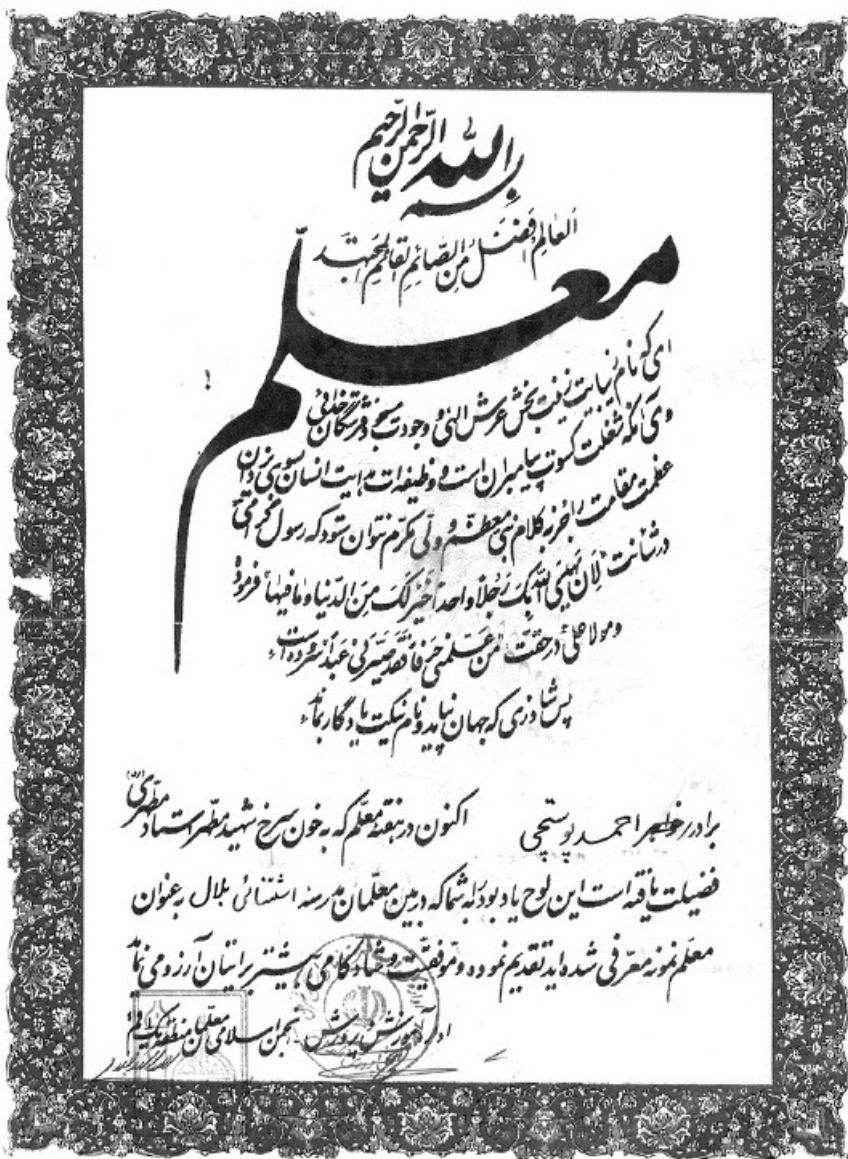 بسم الله الرحمن الرحیم
العالم افضل من الصائم القائم المجتهد
معلم
ای که نام زیبایت زینت بخش عرش الهی و وجودت مسجود فرشتگان خدائی
وی آنکه شغلت کسوت پیامبران است و وظیفه ات هدایت انسان بسوی یزدان
عظمت مقامت را جز به کلام نبی معظم و ولی مکرم نتوان ستود که رسول گرامی
در شانت "لان یهدی الله بک رجلا واحدا خیر لک من الدنیا و ما فیها" فرموده
و مولا علی در حقت "من علمنی حرفا فقد صیرنی عبدا" فرموده است
پس شاد زی که جهان نپاید و نام نیکت یادگار بماند
برادر خواهر احمد پوستچی اکنون در هفته معلم که به خون سرخ شهید مطهر استاد مطهری
فضیلت یافته است این لوح یادبود را به شما که در بین معلمان مدرسه استثنائی بلال به عنوان
معلم نمونه معرفی شده اید تقدیم نموده و موفقیت و شادکامی بیشتر برایتان آرزو می نماید
اداره آموزش و پرورش - انجمن اسلامی معلمان منطقه یک